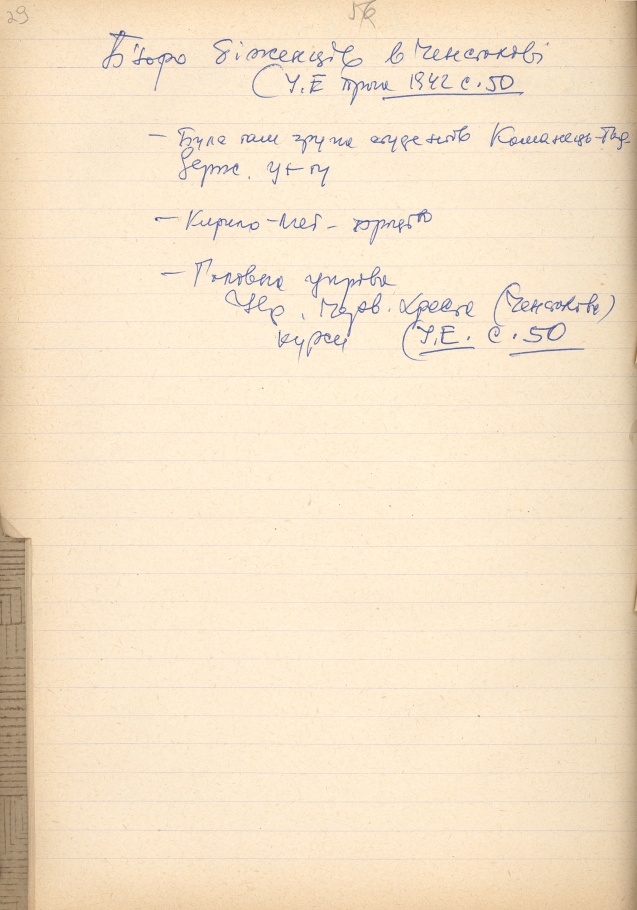 29
56
Бюро біженців в Ченстохові
(У.Е Прага 1942 с. 50
– Була там група студентів Команець-Под-
держ. у-ту
– Кирило-Мет-
– Головна управа
Укр. Черв. Хреста (Ченстохова)
курси (У.Е. с. 50